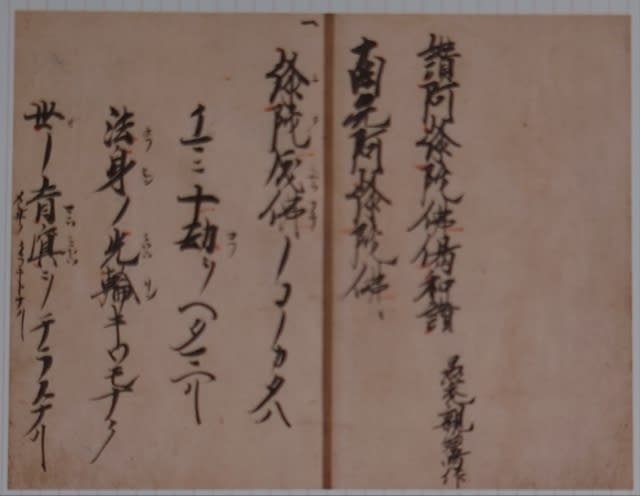 讃阿弥陀佛偈和讃
愚禿親鸞作
南无阿弥陀佛
弥陀成佛ノコノカタハ
イマニ十劫ヲヘタマヘリ
法身ノ光輪キワモナク
世ノ盲冥ヲテラスナリ